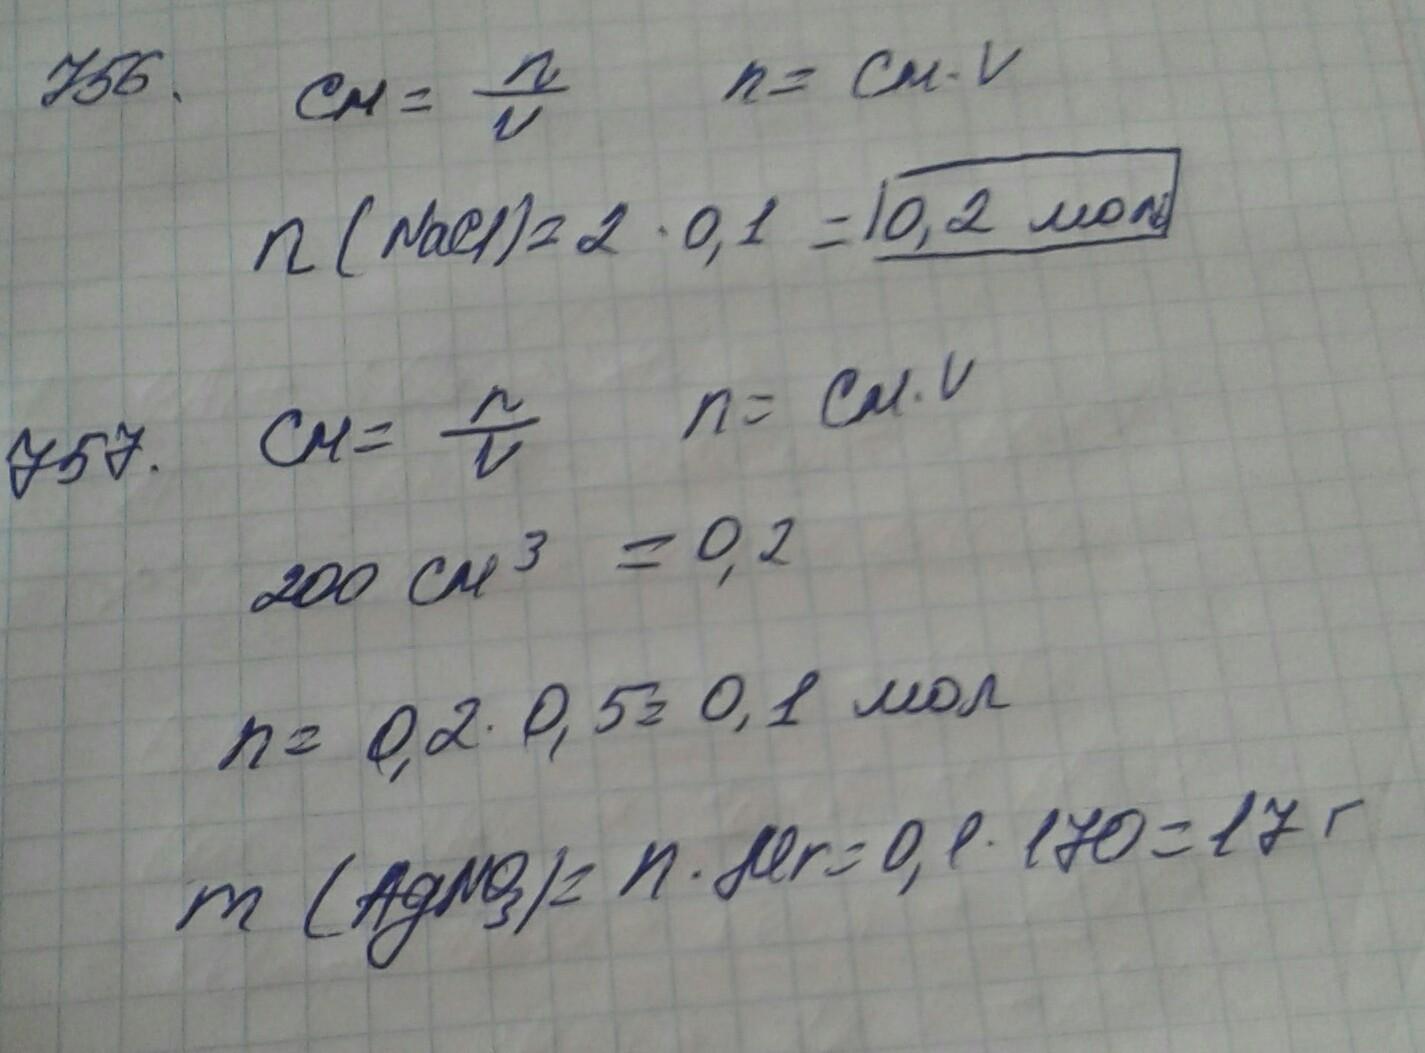 756. Cм = n/V n = Cм · V
n (NaCl) = 2 · 0,1 = 0,2 мол
757. Cм = n/V n = Cм · V
200 см³ = 0,2
n = 0,2 · 0,5 = 0,1 мол
m (AgNO₃) = n · Mr = 0,1 · 170 = 17 г